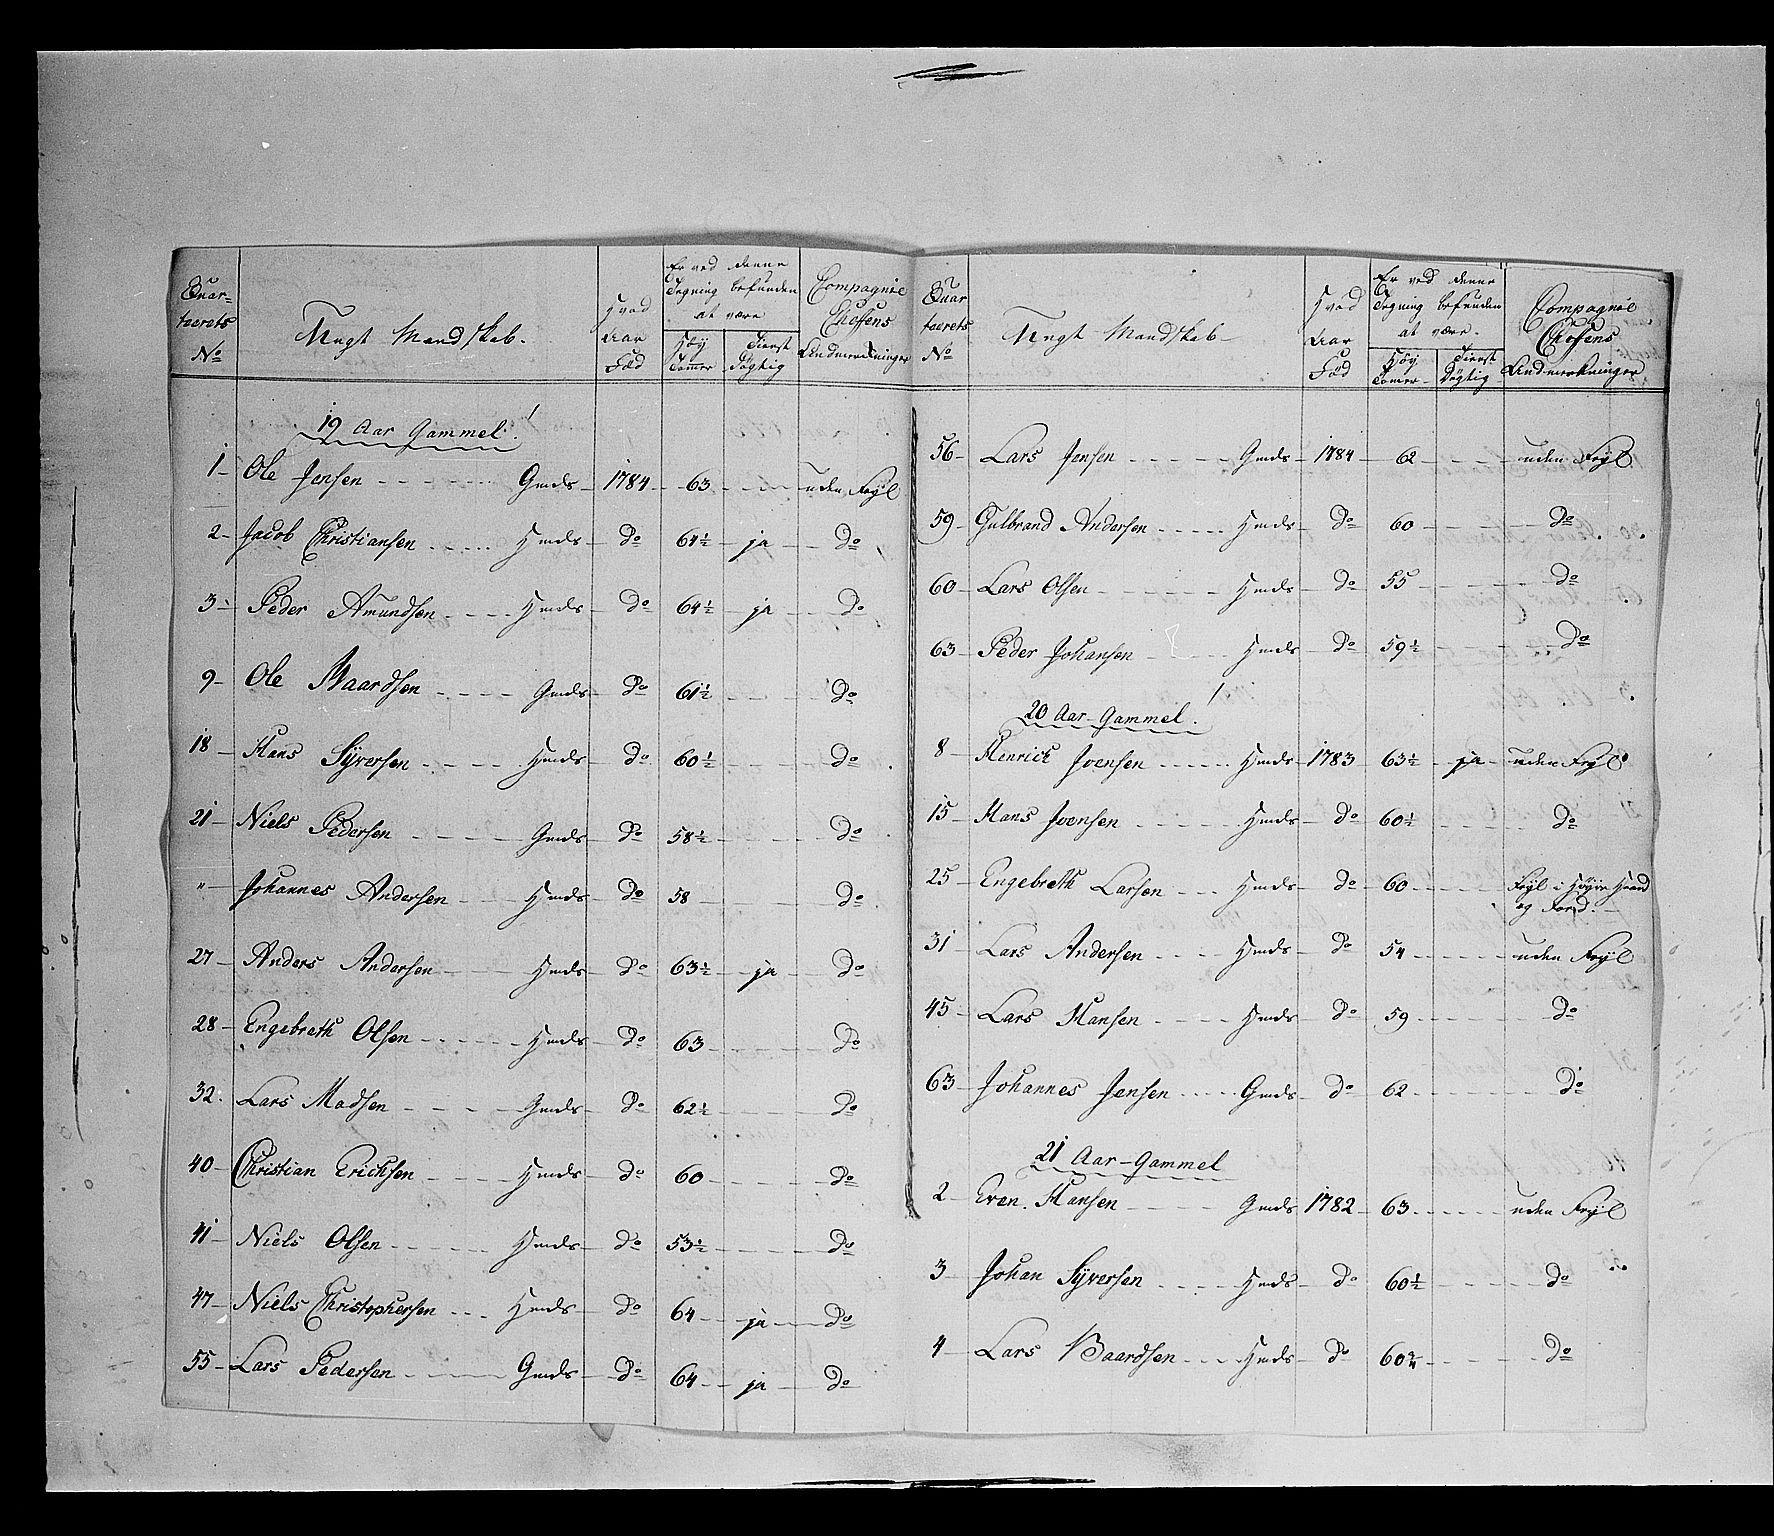 Quar=
teerets
No
Ungt Mandskab.
Hvad
Aar
Fød
Er ved denne
Tegning befunden
at være
Høy
Tomer
Tienst
Døgtig
Compagnie
Cheffens
Anmerkninger
19 Aar Gammel!
1 Ole Jensen Gmds 1784 63 uden Feyl
2 Jacob Christiansen Hmds Do 64½ ja Do
3 Peder Amundsen Hmds Do 64½ ja Do
9 Ole Baardsen Gmds Do 61½ Do
18 Hans Syversen Hmds Do 60½ Do
21 Niels Pedersen Gmds Do 58½ Do
" Johannes Andersen Hmds Do 58 Do
27 Anders Andersen Hmds Do 63½ ja Do
28 Engebreth Olsen Hmds Do 63 Do
32 Lars Madsen Gmds Do 62½ Do
40 Christian Ericksen Hmds Do 60 Do
41 Niels Olsen Hmds Do 53½ Do
47 Niels Christophersen Hmds Do 64 ja Do
55 Lars Pedersen Gmds Do 64 ja Do
Quar
teerets
No
Ungt Mandskab
Hvad
Aar
Fød
Er ved denne
Tegning befunden
at være.
Høy
Tomer
Tienst
Døgtig
Compagnie
Chefens
Anmerkninger
56 Lars Jensen Gmds 1784 62 uden Feyl
59 Gulbrand Andersen Hmds Do 60 Do
60 Lars Olsen Hmds Do 55 Do
63 Peder Johansen Hmds Do 59½ Do
20 Aar Gammel!
8 Henrich Joensen Hmds 1783 63½ ja uden Feyl
15 Hans Joensen Hmds Do 60½ Do
25 Engebreth Larsen Hmds Do 60 Feyl i Høyre Haand
og Fod.
31 Lars Andersen Hmds Do 54 uden Feyl
45 Lars Hansen Hmds Do 59 Do
63 Johannes Jensen Gmds Do 62 Do
21 Aar Gammel
2 Even Hansen Gmds 1782 63 uden Feyl
3 Johan Syversen Hmds Do 60½ Do
4 Lars Baardsen Hmds Do 60¾ Do